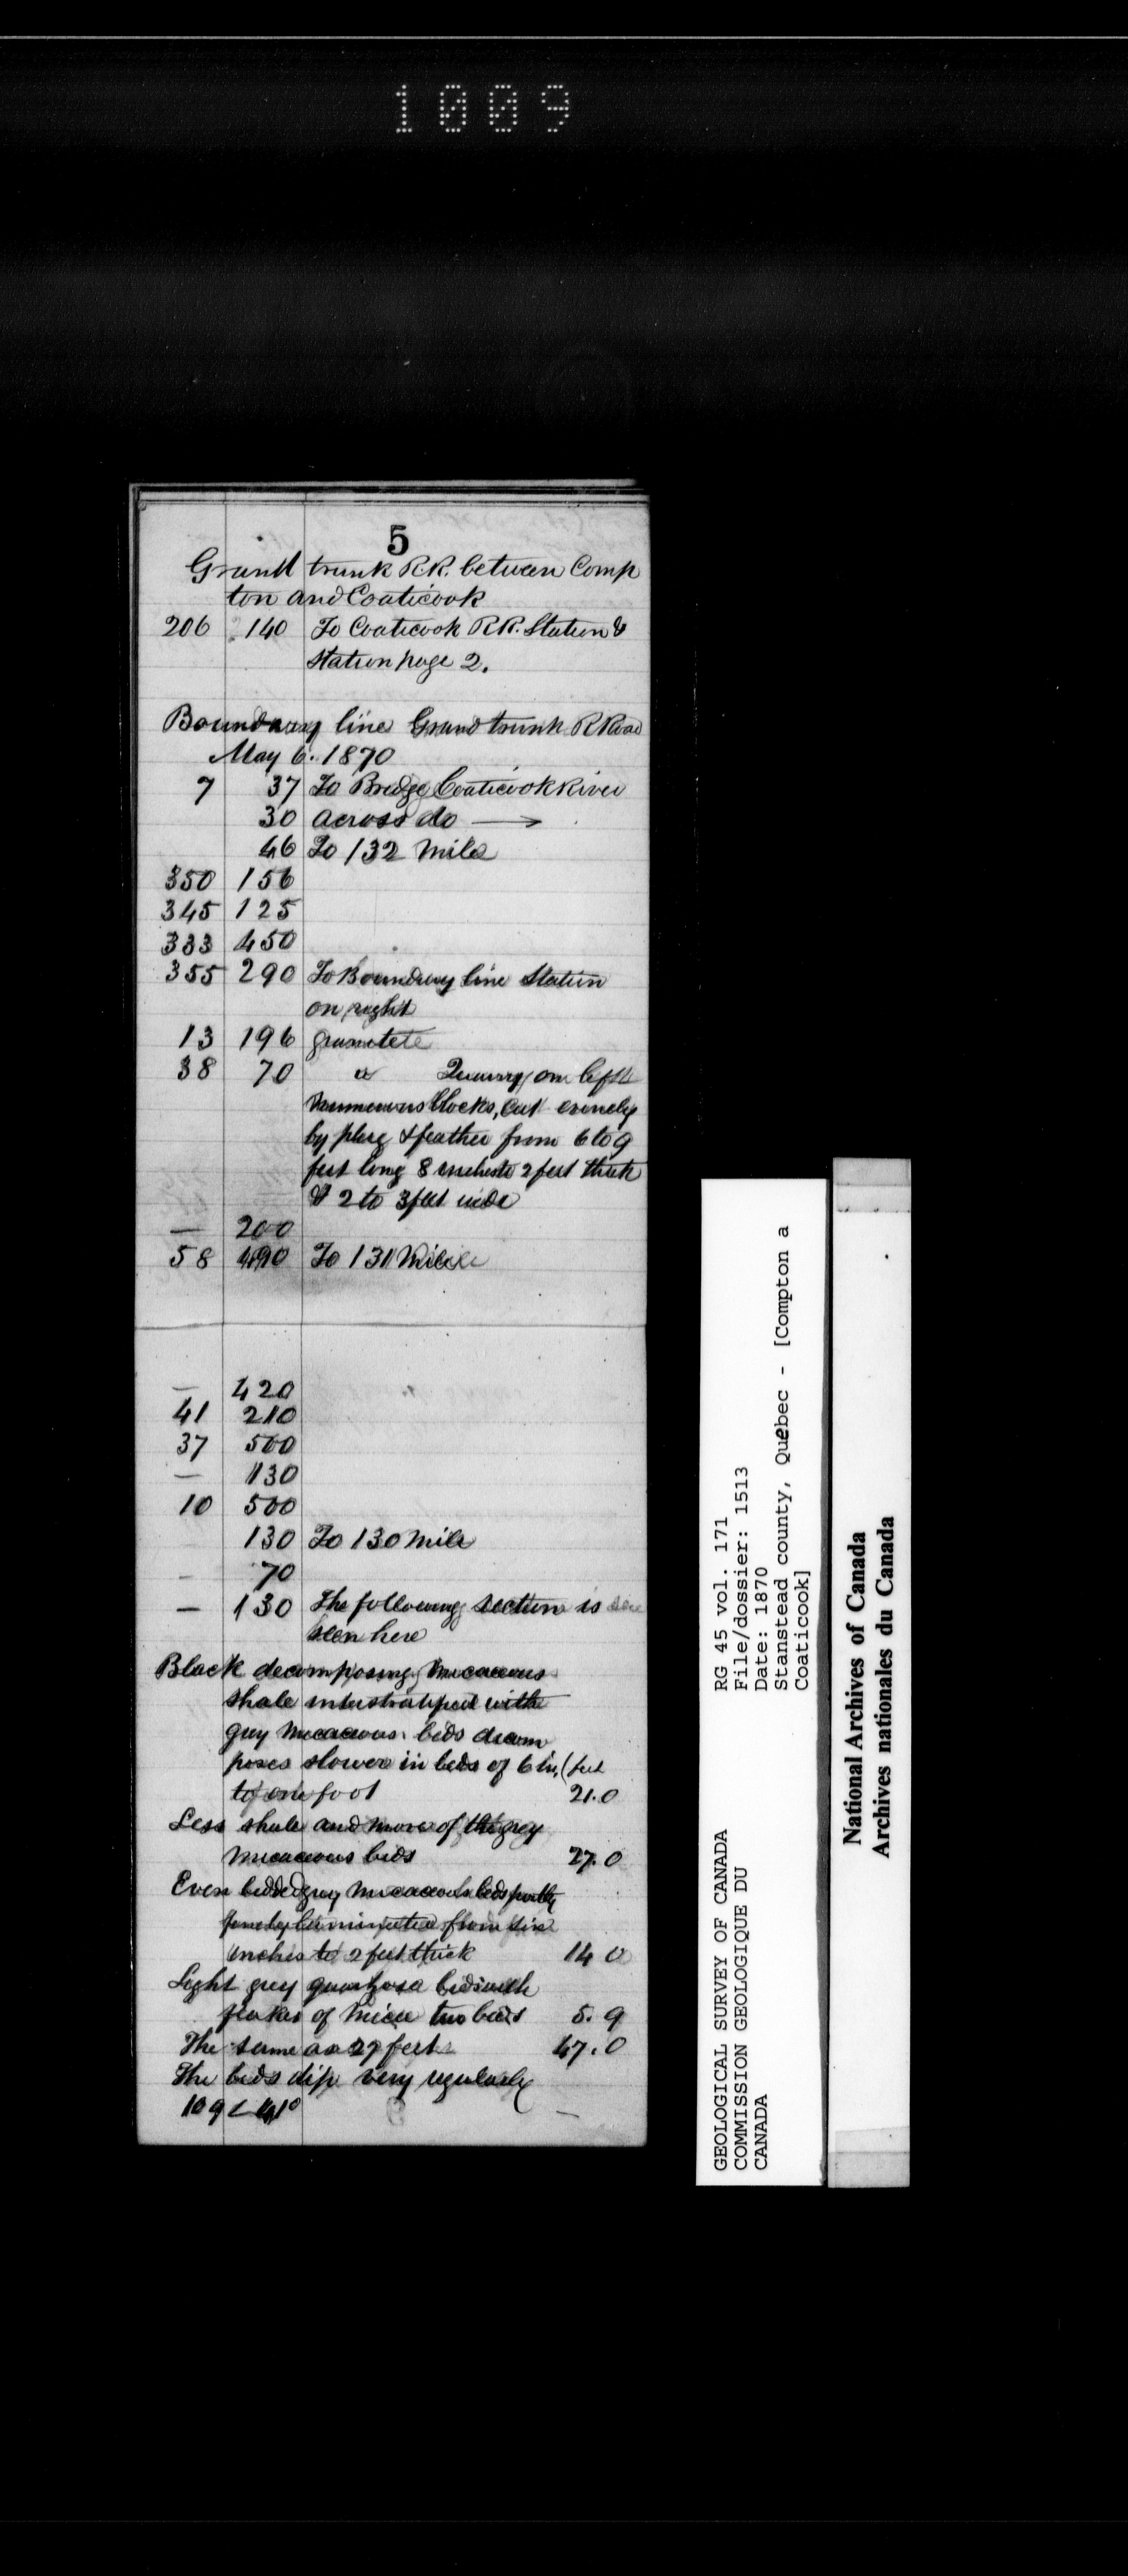 1009
5
Grand trunk R.R. between Comp
ton and Coaticook
206 140 To Coaticook R.R. Station &
Station page 2.
Boundary line Grand trunk R Road
May 6. 1870
7 37 To Bridge Coaticook River
30 across do →
46 To 132 Mile
350 156
345 125
333 450
355 290 To Boundary line Station
on right
13 196
38 70 Quarry on left
numerous blocks, cut evenly
by plug & feather from 6 to 9
feet long 8 inches to 2 feet thick
& 2 to 3 feet wide
— 200
58 490 To 131 Mile
— 420
41 210
37 500
— 130
10 500
130 To 130 Mile
— 70
— 130 The following section is
seen here
Black decomposing micaceous
shale interstratified with
grey micaceous beds decom
poses slower in beds of 6 in. feet
to one foot 21.0
Less shale and more of the grey
micaceous beds 27.0
Even bedded grey micaceous beds partly
finely laminated from six
inches to 2 feet thick 14 0
Light grey quartzose beds with
flakes of mica two beds 5.9
The same as 27 feet 47.0
The beds dip very regularly
109 < 41°
GEOLOGICAL SURVEY OF CANADA RG 45 vol. 171
COMMISSION GEOLOGIQUE DU File/dossier: 1513
CANADA Date: 1870
Stanstead county, Quebec - [Compton a
Coaticook]
National Archives of Canada
Archives nationales du Canada